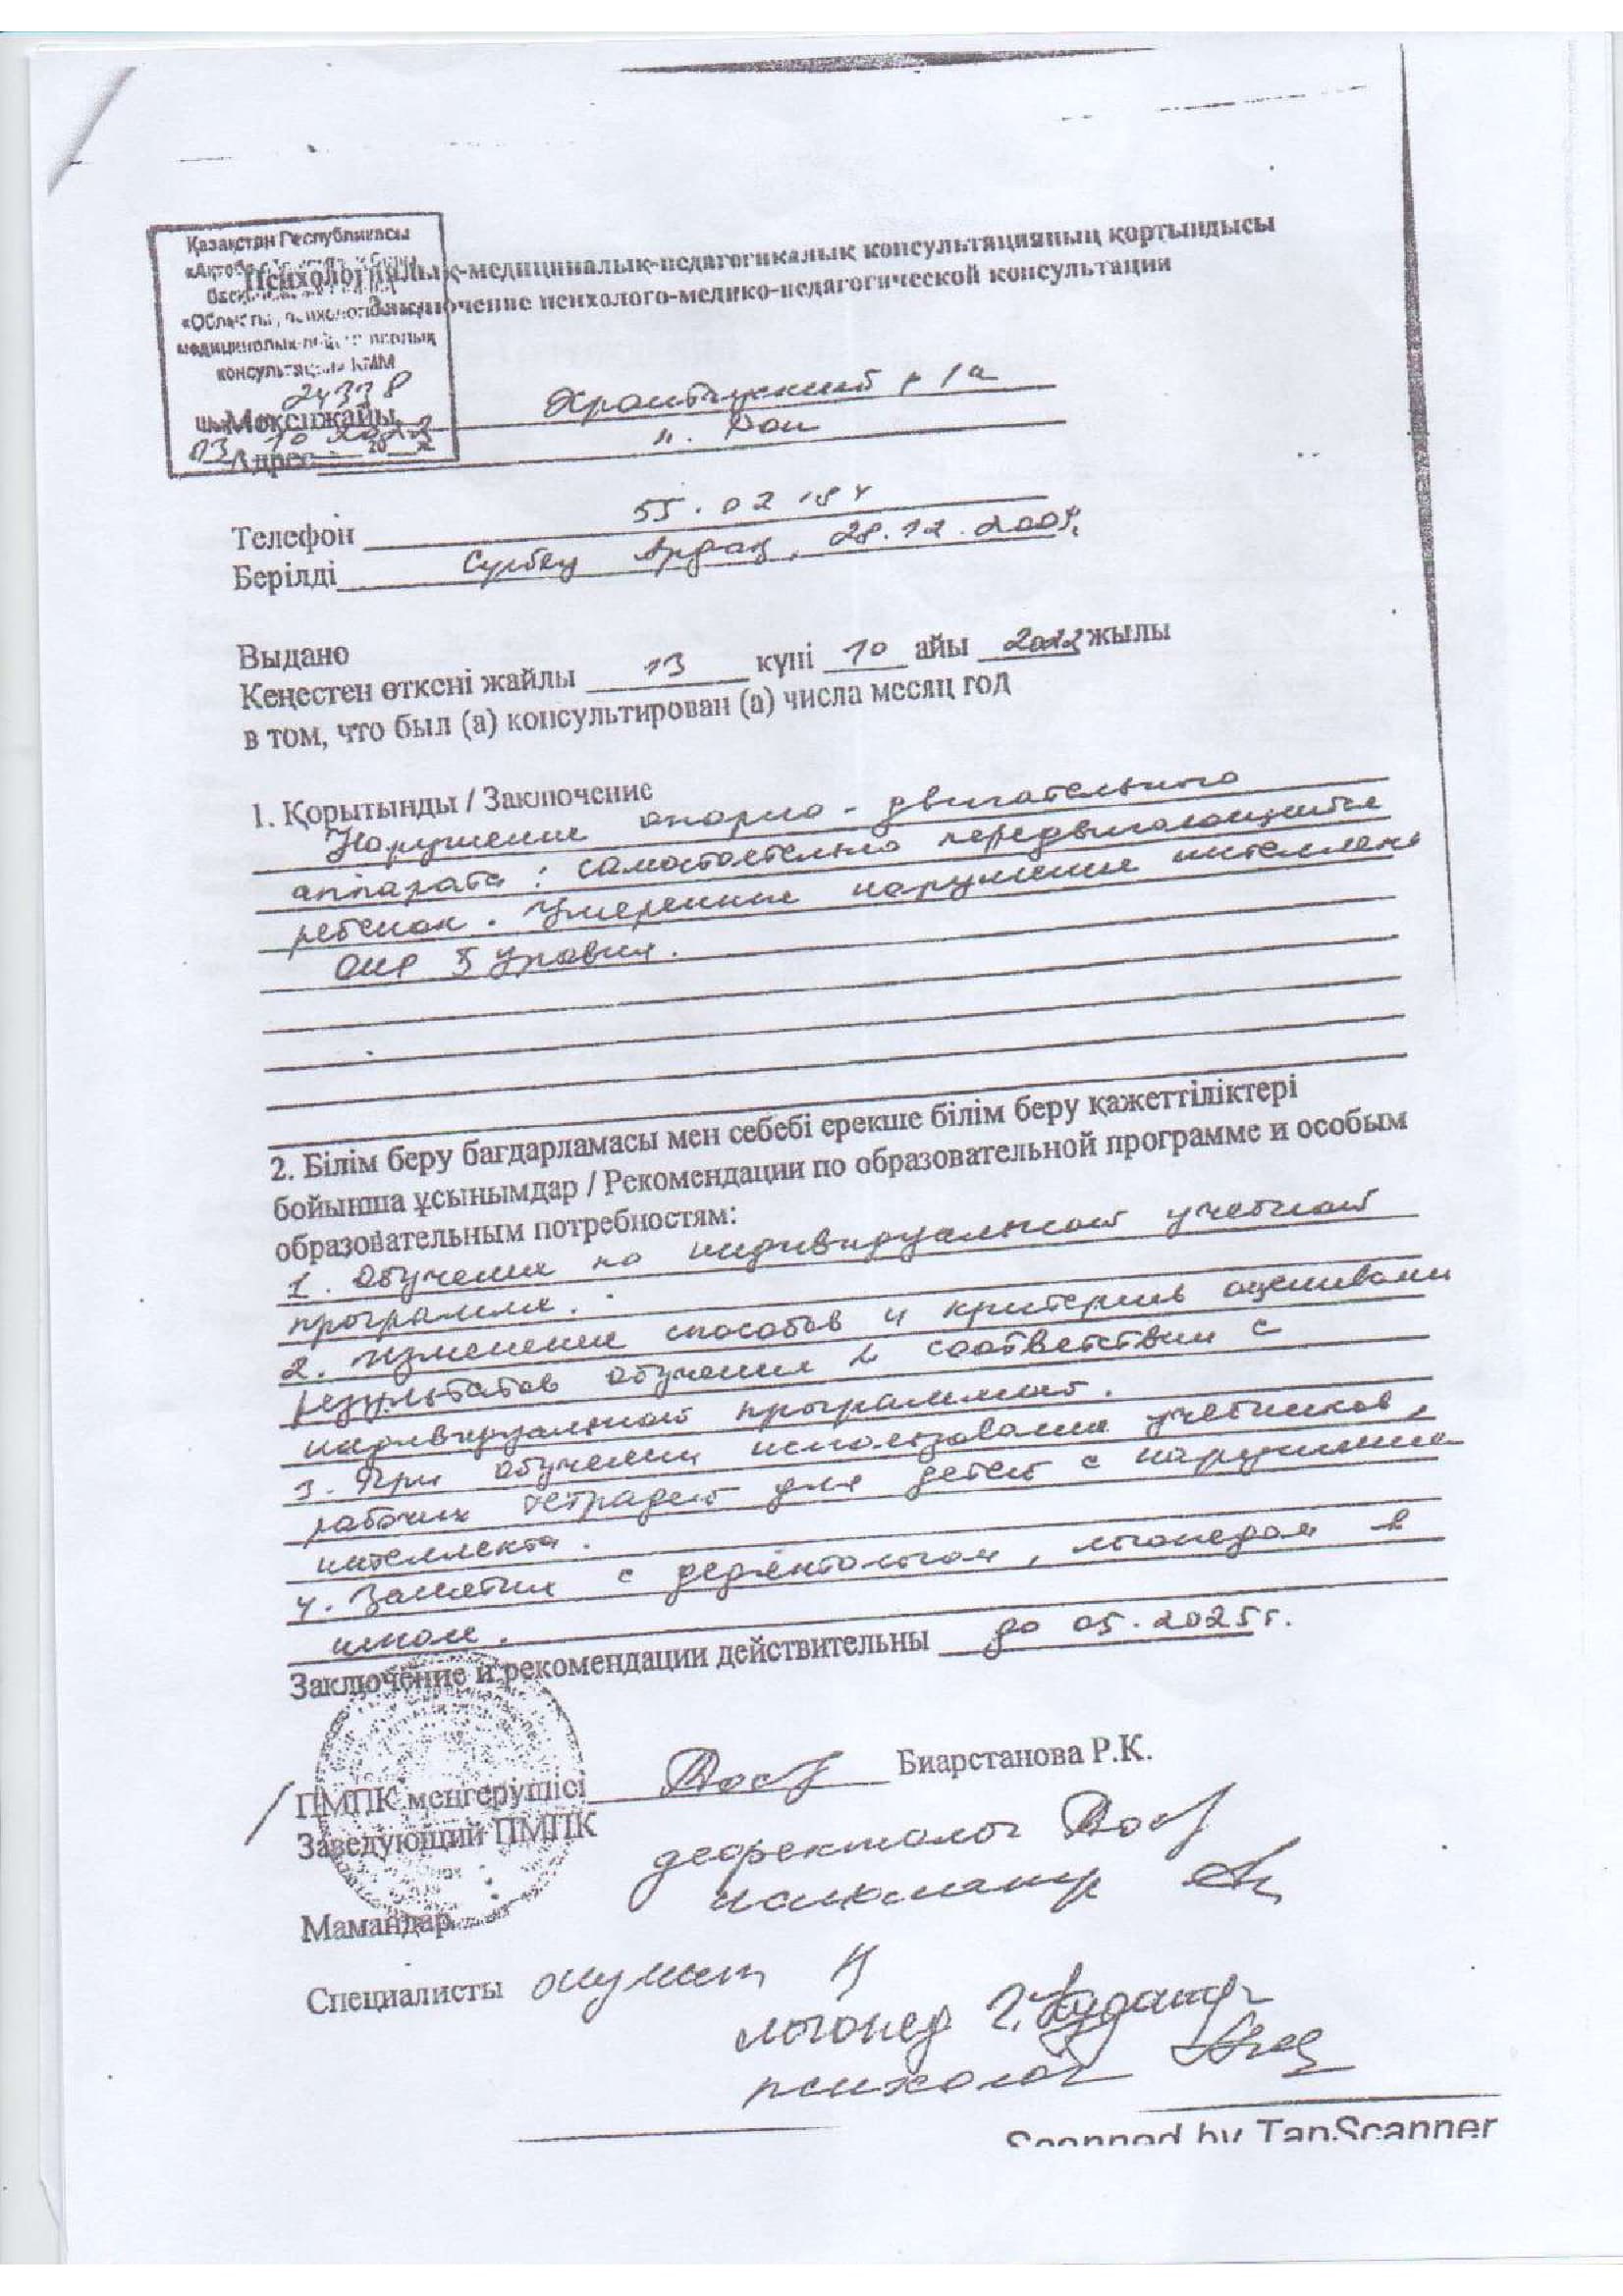 Қазақстан Республикасы
консультация КММ
24338
13 10 2022
20
Психологиялық-медициналық-педагогикалық консультацияның қортындысы
Заключение психолого-медико-педагогической консультации
Мекенжайы
Адрес
Телефон 55.02
Берілді Ардақ, 28.12.
Выдано
Кеңестен өткені жайлы 13 күні 10 айы 2022 жылы
в том, что был (а) консультирован (а) числа месяц год
1. Қорытынды / Заключение
Нарушение опорно - двигательного
аппарата: самостоятельно передвигающийся
ребенок. Умеренное нарушение интеллек
ОНР уровня.
2. Білім беру бағдарламасы мен себебі ерекше білім беру қажеттіліктері
бойынша ұсынымдар / Рекомендации по образовательной программе и особым
образовательным потребностям:
1. Обучение по индивидуальной учебной
программе.
2. Изменение способов и критериев оценивани
результатов обучения в соответствии с
индивидуальной программой.
3. При обучении использование учебников,
рабочих тетрадей для детей с нарушением
интеллекта.
4. Занятия с дефектологом, логопедом в
школе.
Заключение и рекомендации действительны до 05.2025 г.
ПМПК меңгерушісі Биарстанова Р.К.
Заведующий ПМПК
дефектолог
Мамандар
Специалисты
логопед
психолог
Scanned by TapScanner